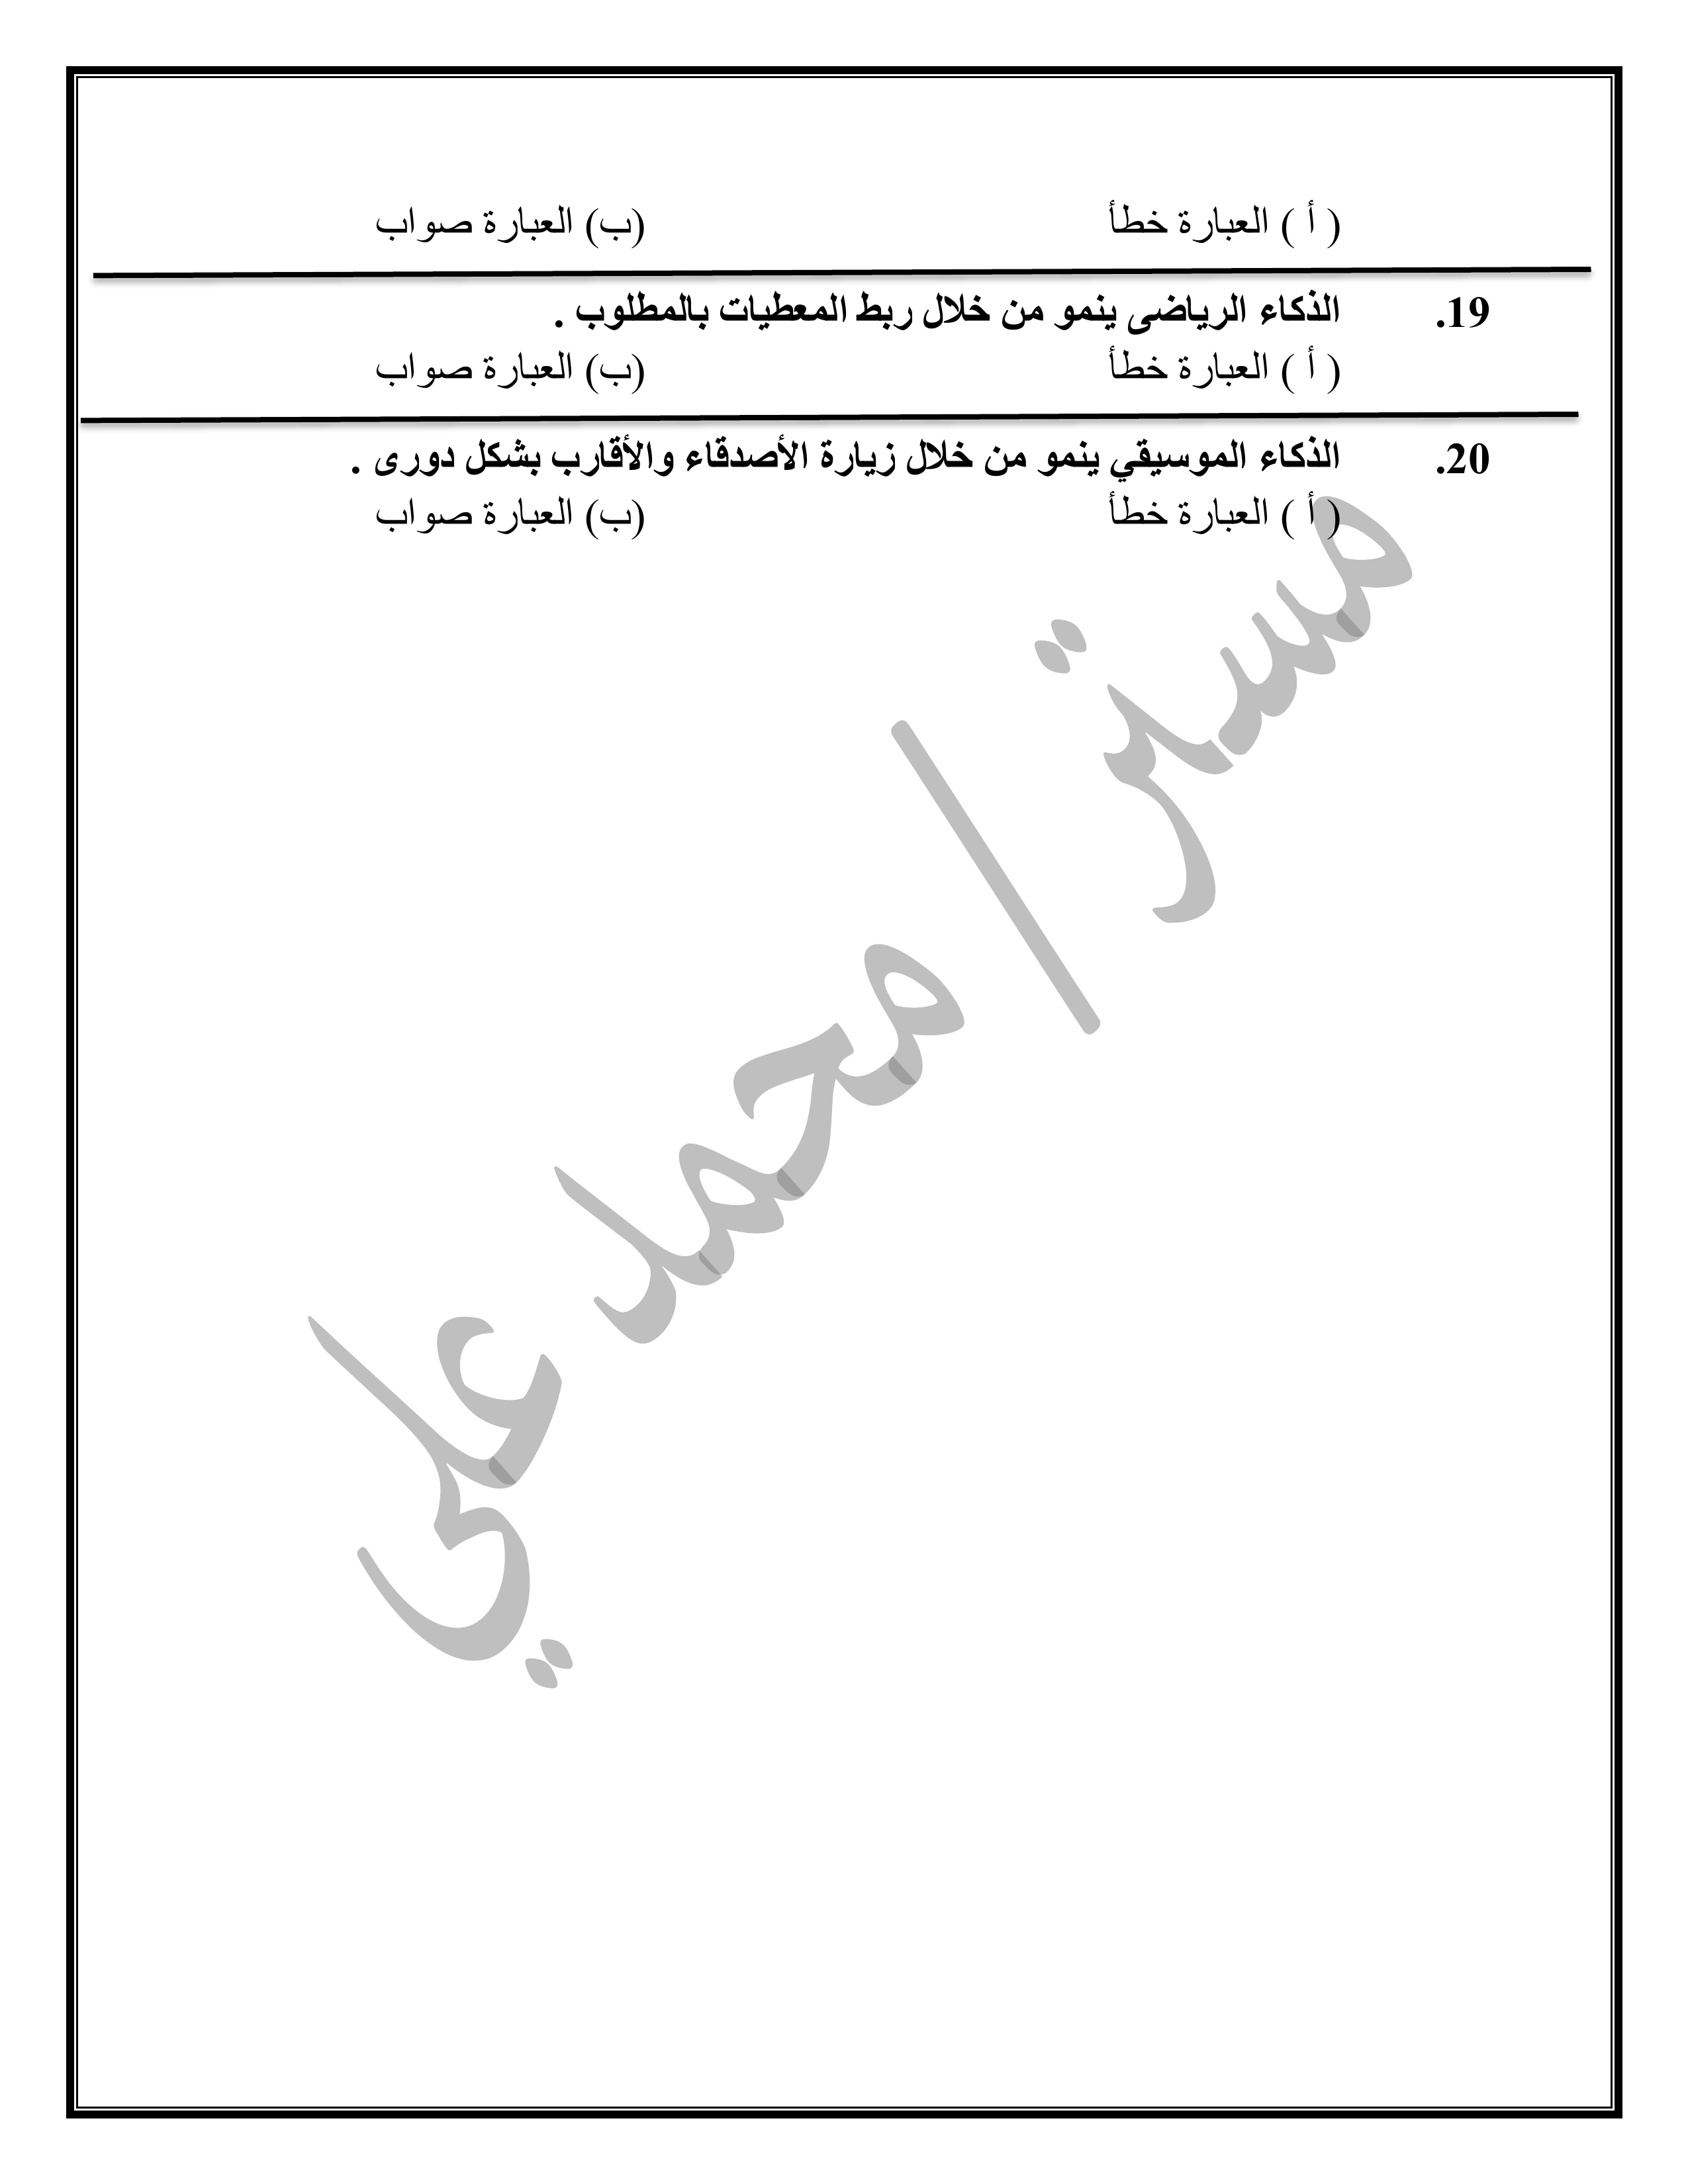 ( أ ) العبارة خطأ (ب) العبارة صواب
19. الذكاء الرياضى ينمو من خلال ربط المعطيات بالمطلوب .
( أ ) العبارة خطأ (ب) العبارة صواب
20. الذكاء الموسيقي ينمو من خلال زيارة الأصدقاء والأقارب بشكل دورى .
( أ ) العبارة خطأ (ب) العبارة صواب
مستر / محمد علي